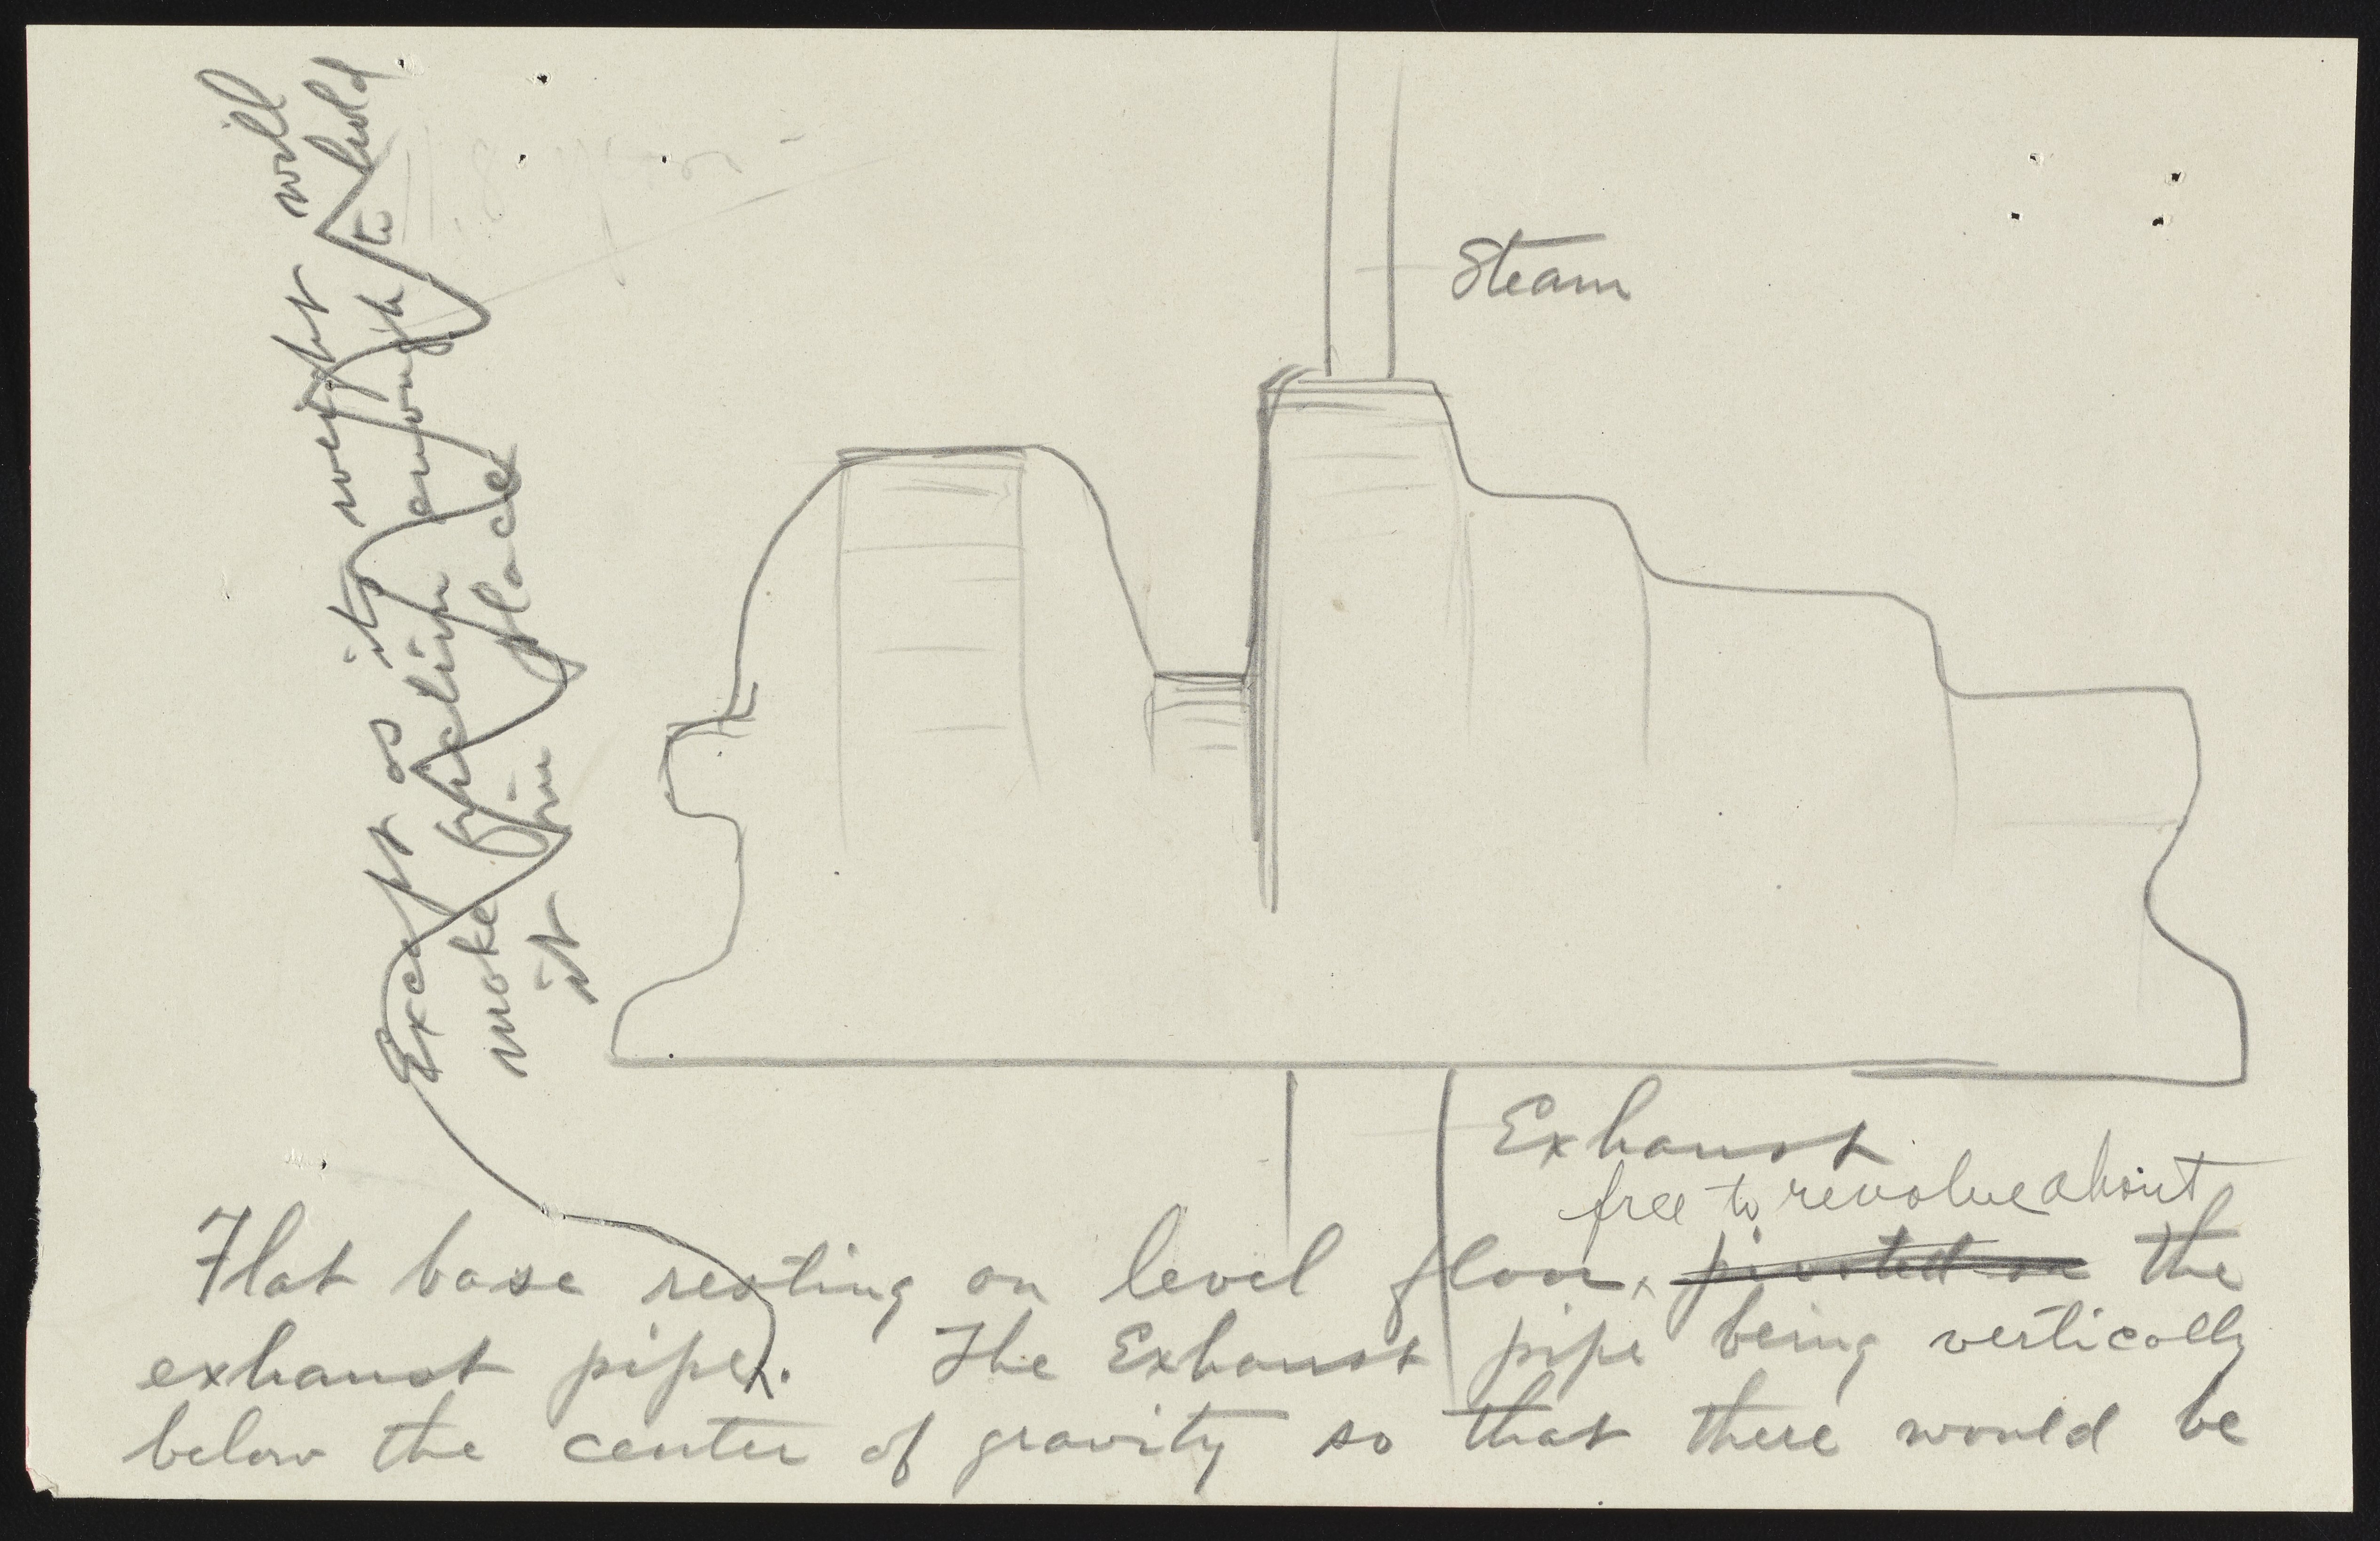 Steam
Exhaust
free to revolve about
Flat base resting on level floor, x pivoted on the
exhaust pipe. The Exhaust pipe being vertically
below the center of gravity so that there would be
Except as its weight will
make friction enough to hold
it in place